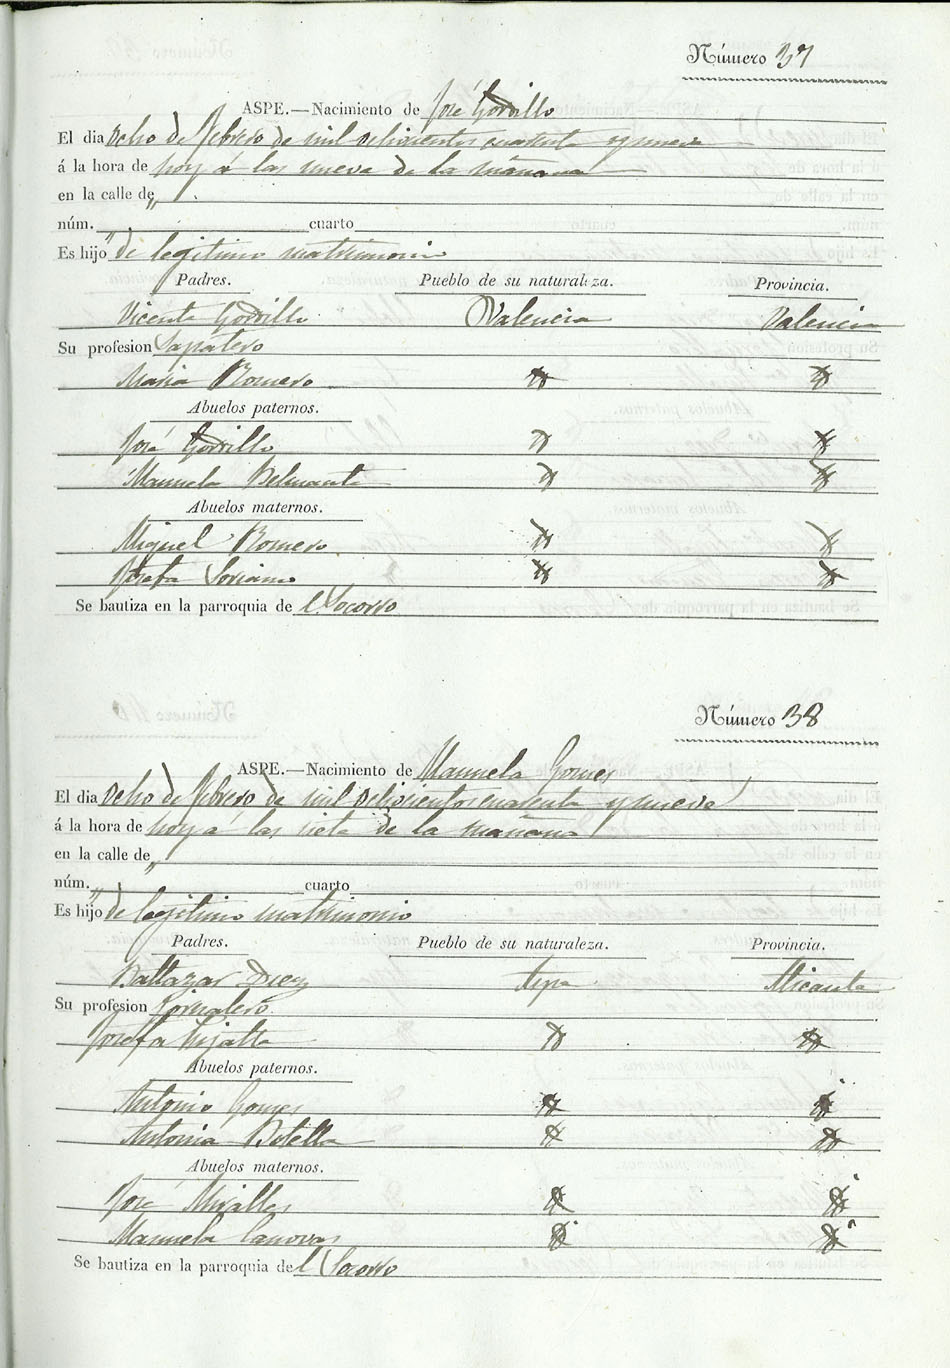 Número 37
ASPE.—Nacimiento de José Gorrillo
El dia Ocho de febrero de mil ochocientos cuarenta y nueve
á la hora de hoy á las nueve de la mañana
en la calle de „
núm. „ cuarto
Es hijo de legitimo matrimonio
Padres. Pueblo de su naturaleza. Provincia.
Vicente Gorrillo Valencia Valencia
Su profesion Sapatero
Maria Romero
Abuelos paternos.
José Gorrillo
Manuela Belmonte
Abuelos maternos.
Miguel Romero
Josefa Soriano
Se bautiza en la parroquia de l Socorro
Número 38
ASPE.—Nacimiento de Manuela Gomes
El dia Ocho de febrero de mil ochocientos cuarenta y nueve
á la hora de hoy á las siete de la mañana
en la calle de „
núm. „ cuarto
Es hijo de legitimo matrimonio
Padres. Pueblo de su naturaleza. Provincia.
Baltazar Aspe Alicante
Su profesion Jornalero
Josefa
Abuelos paternos.
Antonio Gomes
Antonia Botella
Abuelos maternos.
José Miralles
Manuela Canovas
Se bautiza en la parroquia de l Socorro